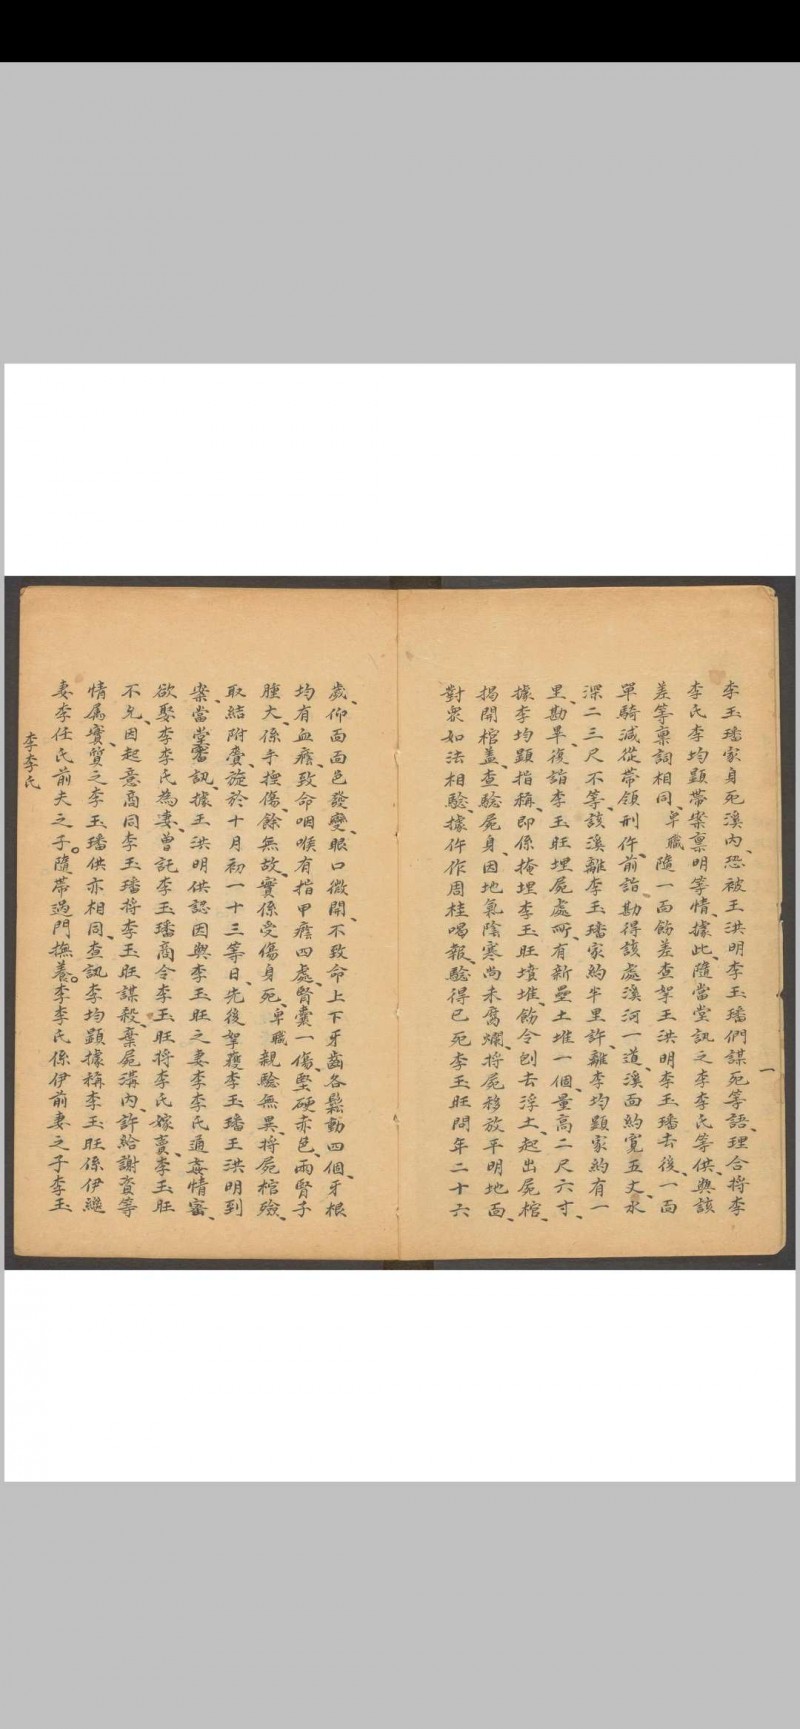 李玉璠家身死溪內、恐被王洪明李玉璠們謀死等語、理合將李
李氏李均顕帶案禀明等情、據此、隨當堂訊之李李氏等供、與該
差等禀詞相同、卑職隨一面飭差查拏王洪明李玉璠去後、一面
單騎減從帶領刑仵、前詣勘得該處溪河一道、溪面約寬五丈、水
深二三尺不等、該溪離李玉璠家約半里許、離李均顕家約有一
里、勘畢、復詣李玉旺埋屍處所、有新壘土堆一個、量高二尺六寸、
據李均顕指稱、即係掩埋李玉旺墳堆、飭令刨去浮土、起出屍棺、
揭開棺盖、查驗屍身、因地氣陰寒尚未腐爛、將屍移放平明地面、
對衆如法相驗、據仵作周桂喝報、驗得已死李玉旺問年二十六
一
歲、仰面面色發變、眼口微開、不致命上下牙齒各鬆動四個、牙根
均有血癊、致命咽喉有指甲痕四處、腎囊一傷、堅硬赤色、兩腎子
腫大、係手揑傷、餘無故、實係受傷身死、卑職親驗無異、將屍棺殮、
取結附賫、旋於十月初一十三等日、先後拏獲李玉璠王洪明到
案、當堂審訊、據王洪明供認因與李玉旺之妻李李氏通姦情密、
欲娶李李氏為妻、曾託李玉璠商令李玉旺將李氏嫁賣、李玉旺
不允、因起意商同李玉璠將李玉旺謀殺、棄屍溝內、許給謝資等
情属實、質之李玉璠供亦相同、查訊李均顕據稱李玉旺係伊繼
妻李任氏前夫之子。隨帶過門撫養。李李氏係伊前妻之子李玉
李李氏